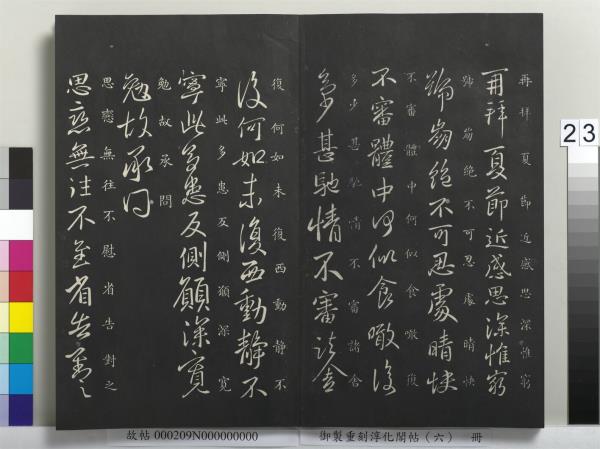 再拜夏節近感思深惟窮
再拜夏節近感思深惟窮
號崩絕不可忍處晴快
號崩絕不可忍處晴快
不審體中何似食噉復
不審體中何似食噉復
多少甚馳情不審諸舍
多少甚馳情不審諸舍
復何如未復西動靜不
復何如未復西動靜不
寧此多患反側顧深寬
寧此多患反側顧深寬
勉故承問
勉故承問
思戀無往不慰省告對之
思戀無往不至省告對之
故帖 000209N000000000
御製重刻淳化閣帖(六) 冊
23